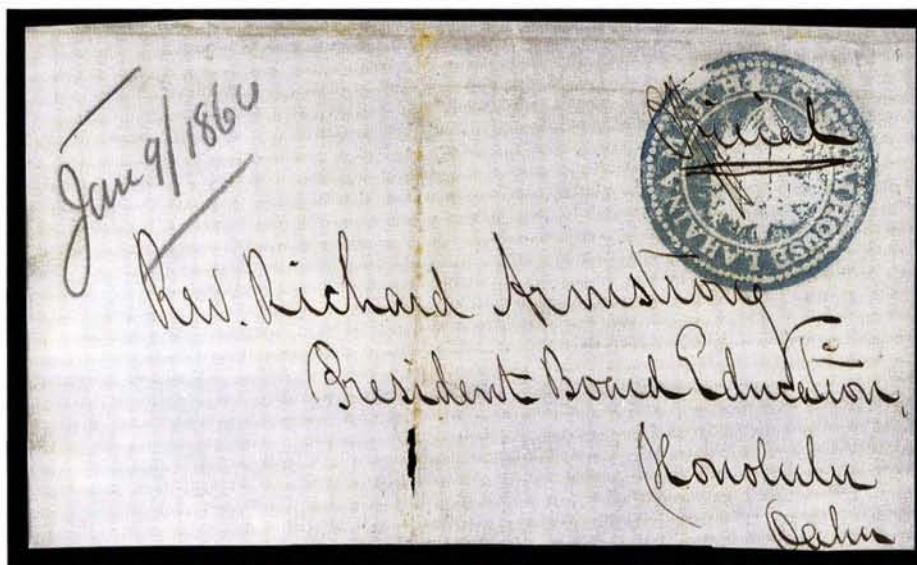 Jan 9/1860
Official
CUSTOM HOUSE LAHAINA
Rev. Richard Armstrong
President Board Education,
Honolulu
Oahu